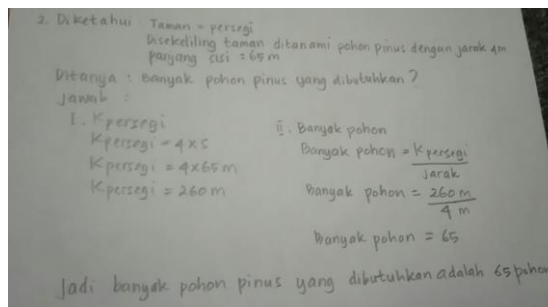 2. Diketahui : Taman = persegi
Disekeliling taman ditanami pohon pinus dengan jarak 4m
panjang sisi = 65 m
Ditanya : Banyak pohon pinus yang dibutuhkan ?
Jawab :
I. Kpersegi
Kpersegi = 4 x s
Kpersegi = 4x65 m
Kpersegi = 260 m
ii. Banyak pohon
Banyak pohon = Kpersegi
jarak
Banyak pohon = 260 m
4 m
Banyak pohon = 65
Jadi banyak pohon pinus yang dibutuhkan adalah 65 pohon